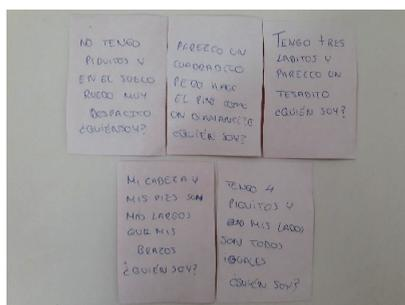 NO TENGO
PIQUITOS Y
EN EL SUELO
RUEDO MUY
DESPACITO
¿QUIÉN SOY?
PAREZCO UN
CUADRADITO
PERO HAGO
EL PINO COMO
UN DIAMANCITO
¿QUIÉN SOY?
TENGO TRES
LADITOS Y
PAREZCO UN
TEJADITO
¿QUIÉN SOY?
MI CABEZA Y
MIS PIES SON
MAS LARGOS
QUE MIS
BRAZOS
¿QUIÉN SOY?
TENGO 4
PIQUITOS Y
MIS LADOS
SON TODOS
IGUALES
¿QUIÉN SOY?